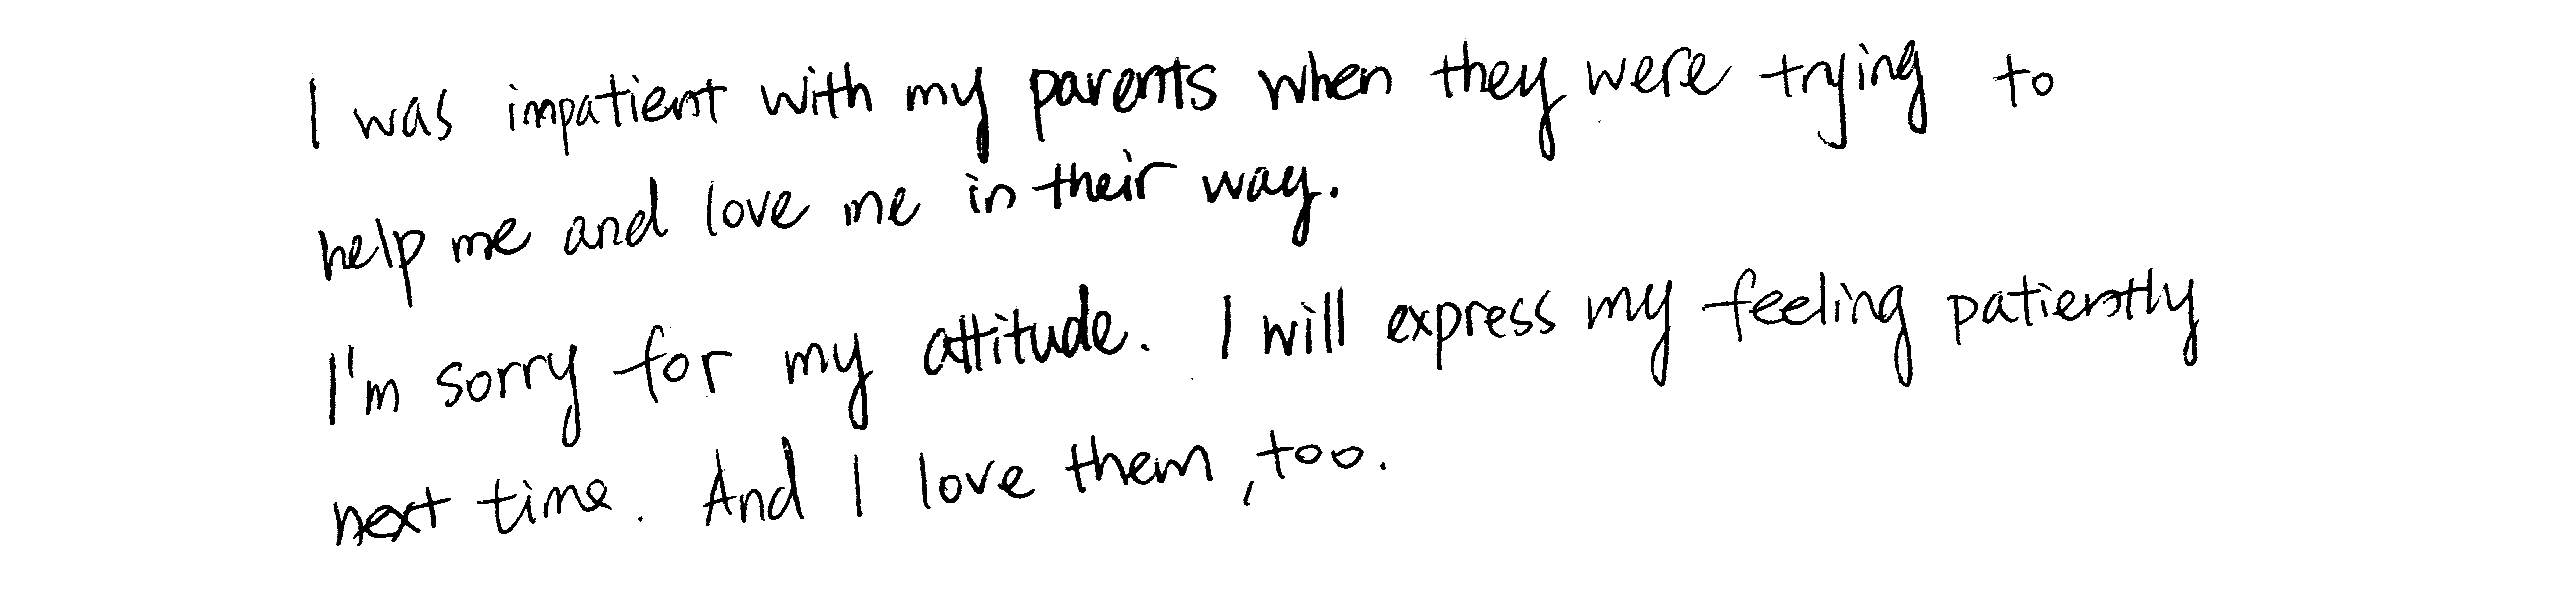 I was impatient with my parents when they were trying to
help me and love me in their way.
I'm sorry for my attitude. I will express my feeling patiently
next time. And I love them, too.